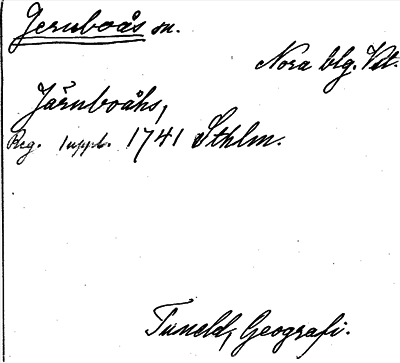 Jernboås sn.
Nora blg. Vst.
Järnboåhs,
Reg. suppl. 1741 Sthlm.
Tuneld, Geografi.